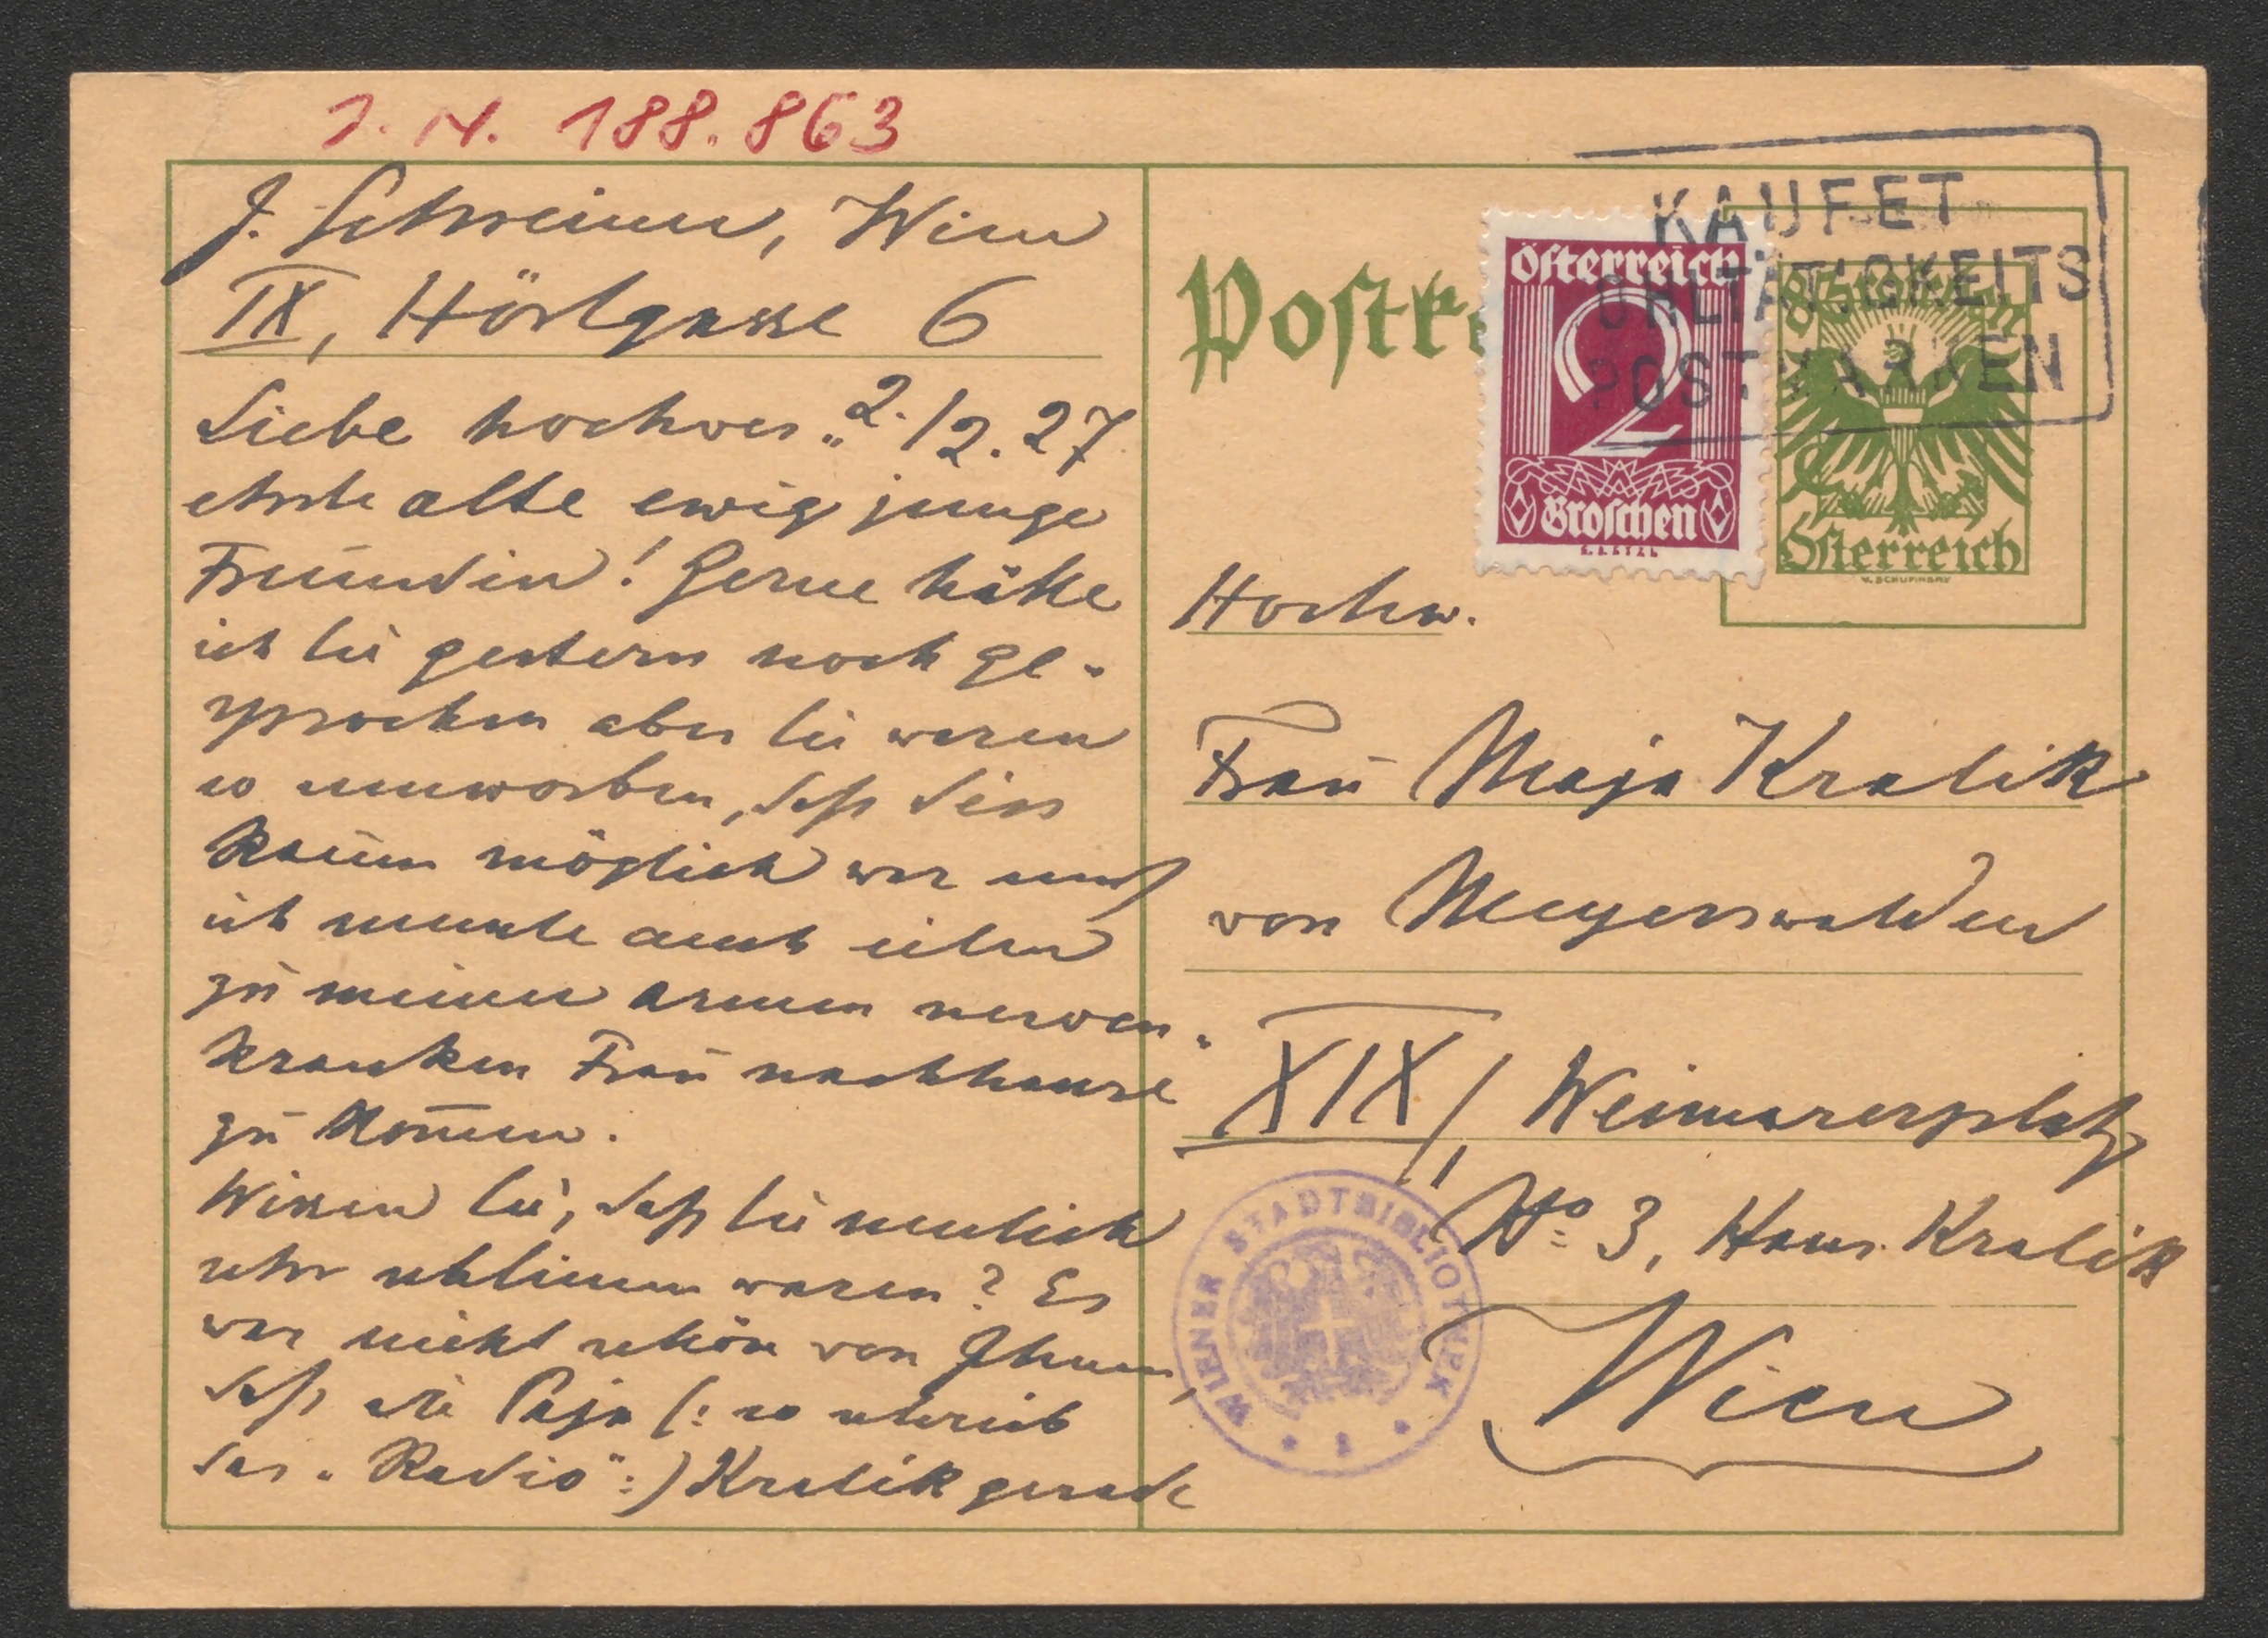 I. N. 188.863
J. Schreiner, Wien
IX, Hörlgasse 6
2./2.27
Liebe hochver„
ehrte alte ewig junge
Freundin! Gerne hätte
ich Sie gestern noch ge-
sprochen aber Sie waren
so umworben, daß dies
kaum möglich war und
ich musste auch eilen
zu meiner armen nerven-
kranken Frau nachhause
zu kom̄en.
Wissen Sie, daß Sie neulich
sehr schlimm waren? Es
war nicht schön von Ihnen,
daß die Paja (: so schrieb
das „Radio":) Kralik gerade
Postk
KAUFET
OHLTÄTIGKEITS
POSTMARKEN
Österreich
2
Groschen
8 Groschen
Österreich
Hochw.
Frau Maja Kralik
von Meyerswalden
XIX/, Weimarerplatz
No 3, Haus Kralik
Wien
WIENER STADTBIBLIOTHEK